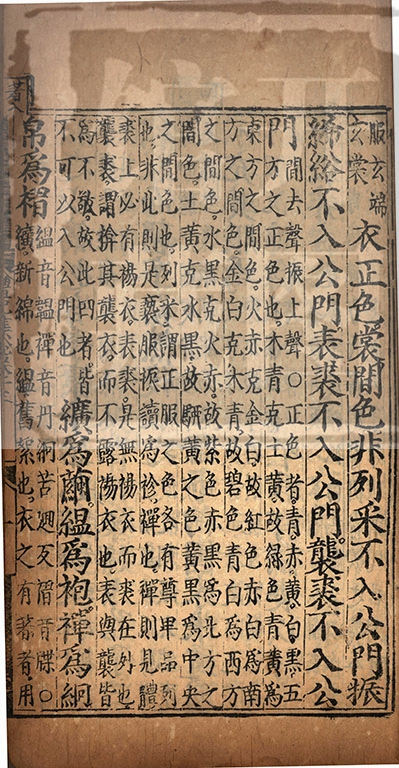 服玄端
玄裳
衣正色裳間色非列采不入公門振
絺綌不入公門表裘不入公門襲裘不入公
門
間去聲振上聲○正色者青赤黃白黑五
方之正色也木青克土黃故綠色青黃爲
東方之間色火赤克金白故紅色赤白爲南
方之間色金白克木青故碧色青白爲西方
之間色水黑克火赤故紫色赤黑爲北方之
間色土黃克水黑故騮黃之色黃黑爲中央
之間色也列采謂正服之色各有尊卑品列
也非此則是褻服振讀爲袗禪也禪則見體
裘上必有裼衣表裘是無裼衣而裘在外也
襲裘謂揜其襲衣而不露裼衣也表與襲皆
爲不敬故此四者皆
不可以入公門也
纊爲繭縕爲袍禪爲絅
帛爲褶
縕音韞禪音丹絅苦迥反褶音牒○
纊新綿也縕舊絮也衣之有著者用